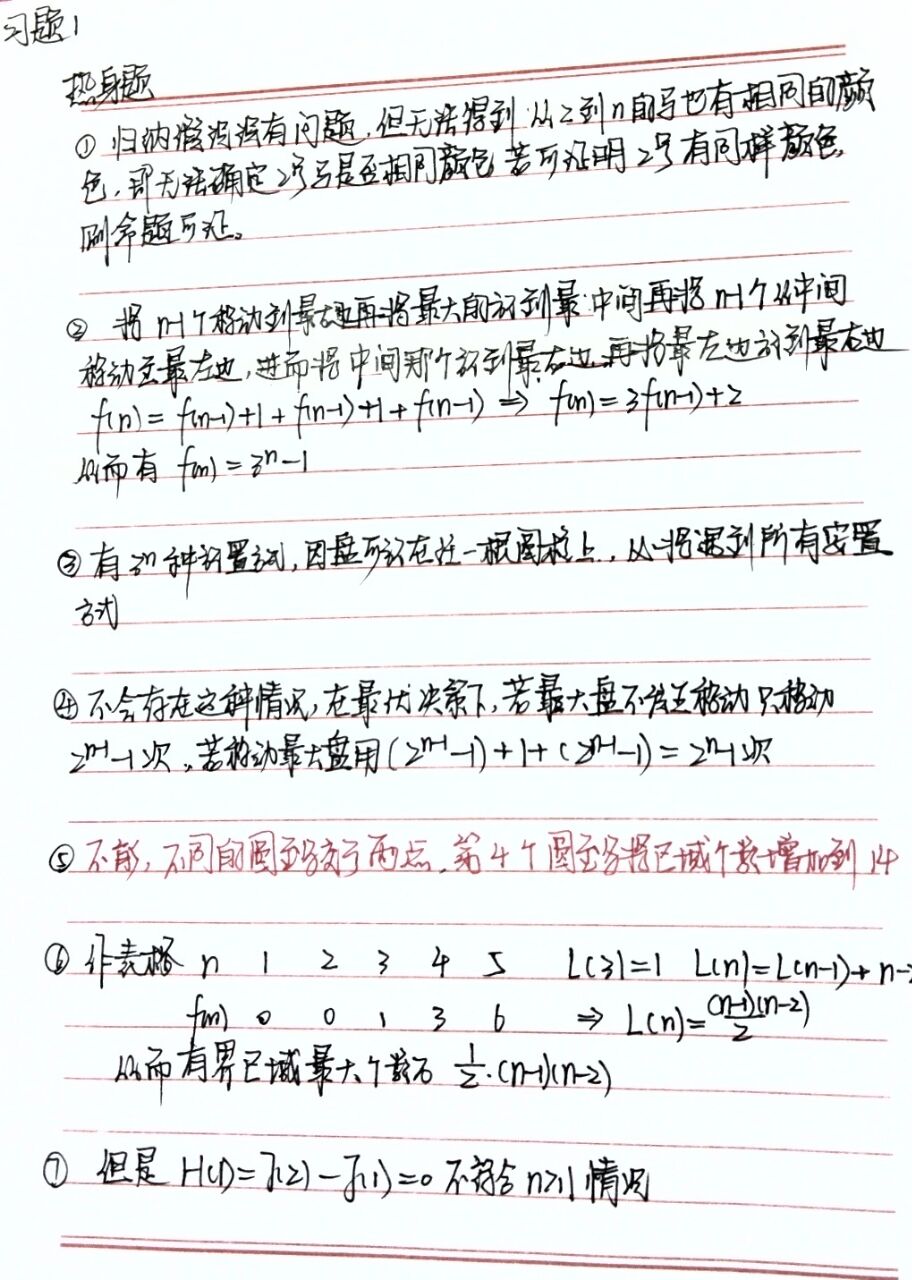 习题1
热身题
① 归纳假设没有问题,但无法得到从2到n的马也有相同的颜
色,即无法确定2号马是否相同颜色 若可证明2号有同样颜色,
则命题可证。
② 将n-1个移动到最右边再将最大的放到最中间再将n-1个从中间
移动至最左边,进而将中间那个放到最右边,再将最左边放到最右边
f(n) = f(n-1)+1+f(n-1)+1+f(n-1) ⇒ f(n)=3f(n-1)+2
从而有 f(n)=3ⁿ-1
③ 有3ⁿ种放置方式,因盘可放在任一根圆柱上,从将遇到所有安置
方式
④ 不会存在这种情况,在最优决策下,若最大盘不发生移动只移动
2ⁿ⁻¹-1次,若移动最大盘用(2ⁿ⁻¹-1)+1+(2ⁿ⁻¹-1)=2ⁿ-1次
⑤ 不能,不同的圆至多交于两点,第4个圆至多将区域个数增加到14
⑥ 作表格 n 1 2 3 4 5 L(3)=1 L(n)=L(n-1)+n-2
f(n) 0 0 1 3 6 ⇒ L(n)=(n-1)(n-2)/2
从而有界区域最大个数为 1/2·(n-1)(n-2)
⑦ 但是 H(1)=J(2)-J(1)=0 不符合n≥1情况